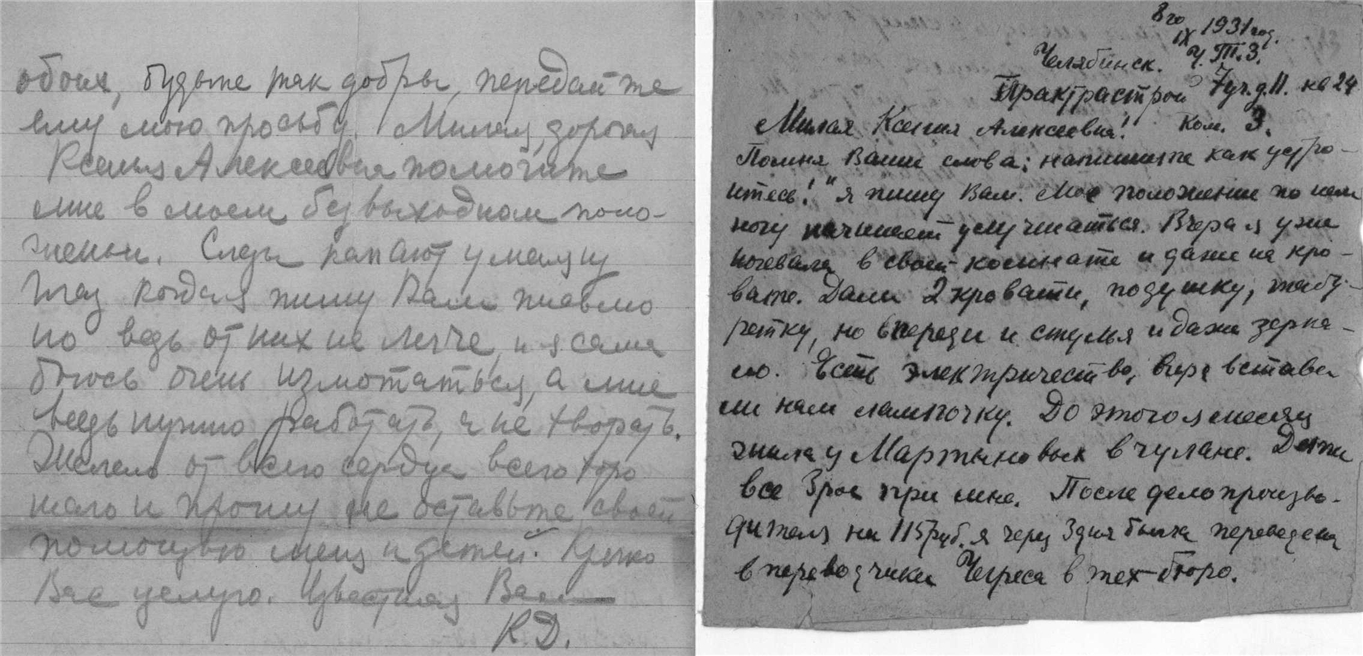 обоих, будьте так добры, передайте
ему мою просьбу. Милая, дорогая
Ксения Алексеевна помогите
мне в моем безвыходном поло-
жении. Слезы капают у меня из
глаз когда я пишу Вам письмо
но ведь от них не легче, и я сама
боюсь очень измотаться, а мне
ведь нужно работать, а не хворать.
Желаю от всего сердца всего хоро
шего и прошу не оставьте своей
помощью меня и детей. Крепко
Вас целую. Известная Вам
К.Д.
8го IX 1931 год.
Челябинск. Ч.Т.З.
Тракторострой 7 уч. д. 11. кв 24
Милая Ксения Алексеевна! Ком. 3.
Помня Ваши слова: напишите как устро-
итесь!" я пишу Вам. Мое положение по нем
ногу начинает улучшаться. Вчера я уже
ночевала в своей комнате и даже на кро-
вати. Дали 2 кровати, подушку, табу-
ретку, но впереди и стулья и даже зерка-
ло. Есть электричество, вчера встави
ли нам лампочку. До этого я месяц
жила у Мартыновых в чулане. Дети
все трое при мне. После делопроизво-
дителя на 115 руб. я через 3 дня была переведена
в переводчики в тех-бюро.